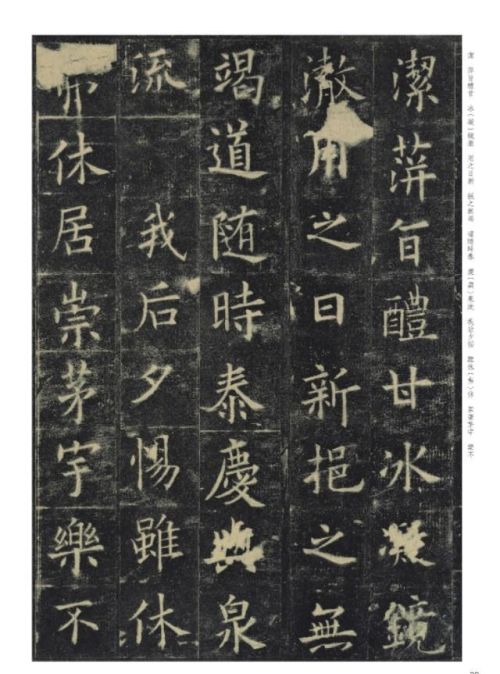 潔萍旨醴甘冰凝鏡
澈用之日新挹之無
竭道随時泰慶與泉
流我后夕惕雖休
弗休居崇茅宇樂不
潔 萍旨醴甘 冰（凝）鏡澈 用之日新 挹之無竭 道隨時泰 慶（與）泉流 我后夕惕 雖休（弗）休 居崇茅宇 樂不